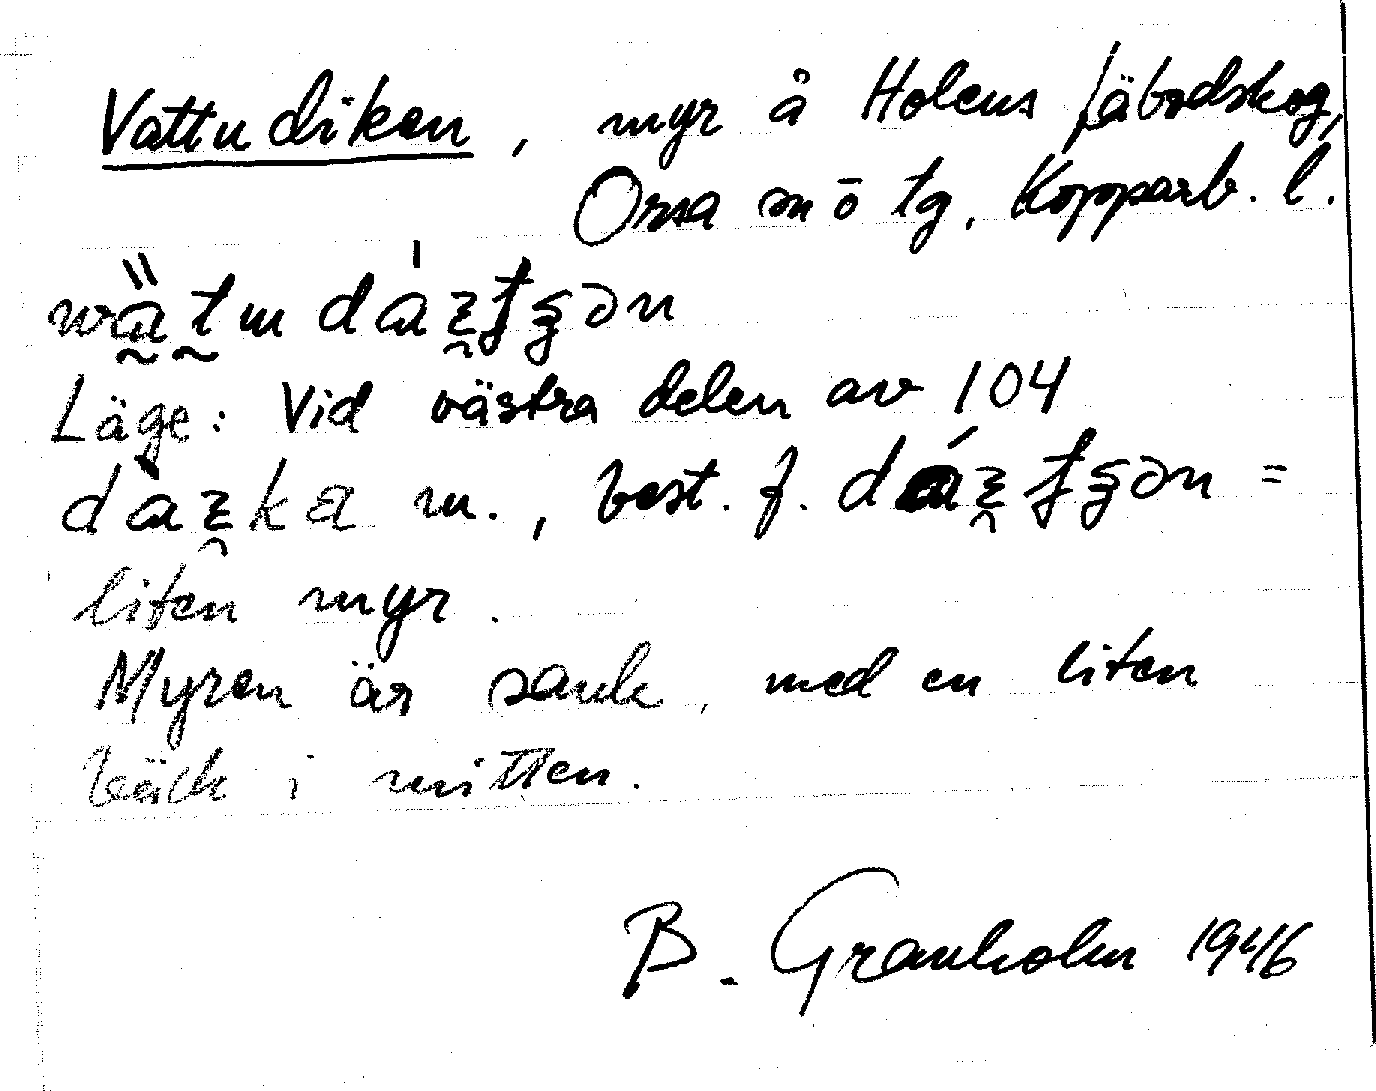 Vattudiken, myr å Holens fäbodskog,
Orsa sn ō tg. Kopparb. l.
Läge: Vid västra delen av 104
m., best. f. =
liten myr.
Myren är sank, med en liten
bäck i mitten.
B. Granholm 1946